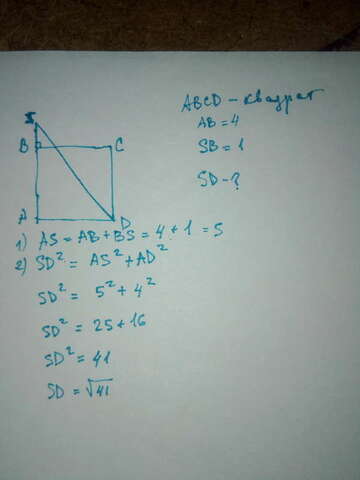 ABCD - квадрат
AB = 4
SB = 1
SD - ?
S
B
C
A
D
1) AS = AB + BS = 4 + 1 = 5
2) SD² = AS² + AD²
SD² = 5² + 4²
SD² = 25 + 16
SD² = 41
SD = √41